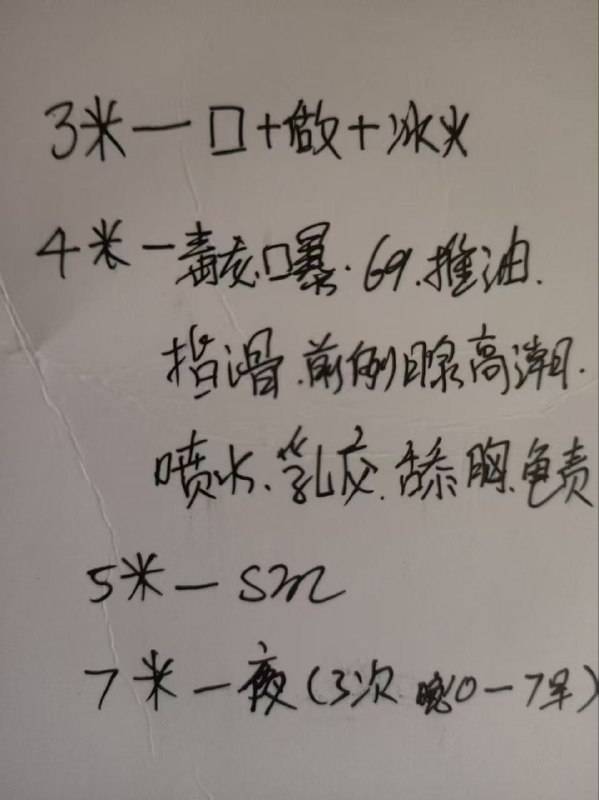 3米一口+做+冰火
4米一毒龙.口暴.69.推油.
指滑.前例腺高潮.
喷水.乳交.舔胸.龟责
5米一sm
7米一夜(3次 晚10一7早)